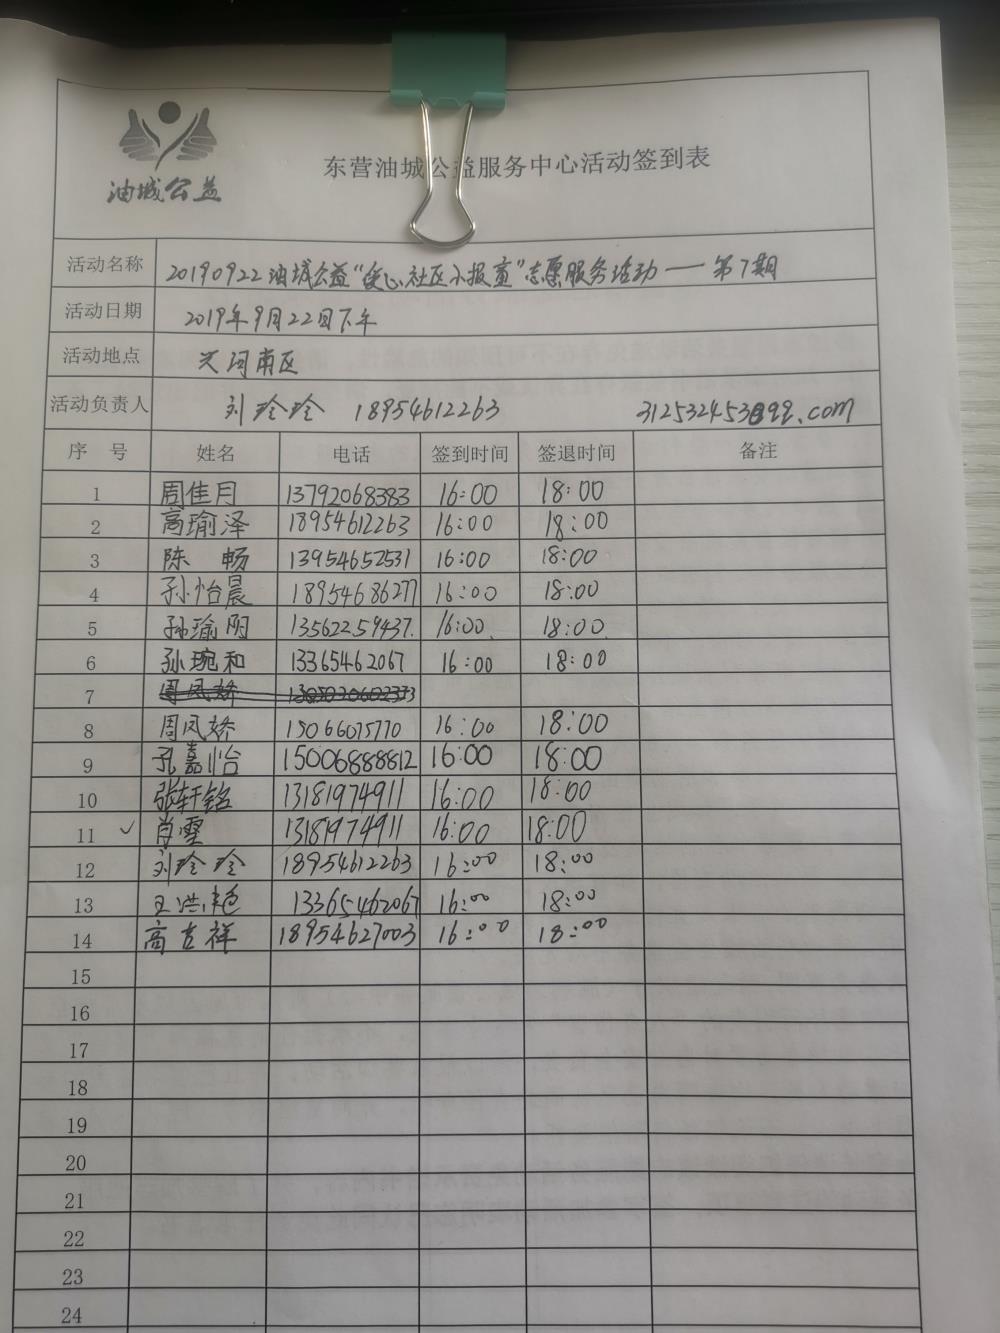 油城公益
东营油城公益服务中心活动签到表
活动名称 20190922油城公益"爱心社区小报童"志愿服务活动——第7期
活动日期 2019年9月22日下午
活动地点 兴河南区
活动负责人 刘玲玲 18954612263 312532453@qq.com
序 号 姓名 电话 签到时间 签退时间 备注
1 周佳月 13792068383 16:00 18:00
2 高瑜泽 18954612263 16:00 18:00
3 陈 畅 13954652531 16:00 18:00
4 孙怡晨 18954686277 16:00 18:00
5 孙瑜阳 13562259437. 16:00 18:00
6 孙琬和 13365462067 16:00 18:00
7 周凤娇
8 周凤娇 15066075770 16:00 18:00
9 孔嘉怡 15006888812 16:00 18:00
10 张轩铭 13181974911 16:00 18:00
11 ✓ 肖雪 13181974911 16:00 18:00
12 刘玲玲 18954612263 16:00 18:00
13 王洪艳 13365462067 16:00 18:00
14 高吉祥 18954627003 16:00 18:00
15
16
17
18
19
20
21
22
23
24